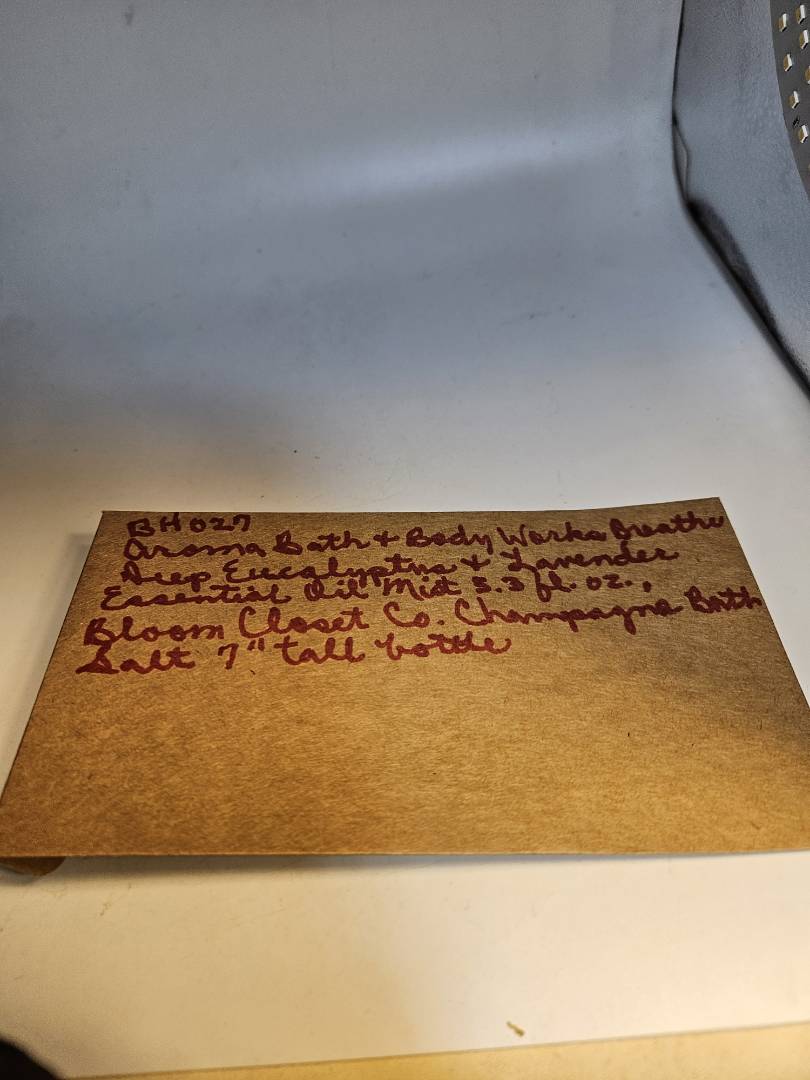 BH027
Aroma Bath + Body Works Breathe
Deep Eucalyptus + Lavender
Essential Oil Mist 5.3 fl. oz.,
Bloom Closet Co. Champagne Bath
Salt 7" tall bottle